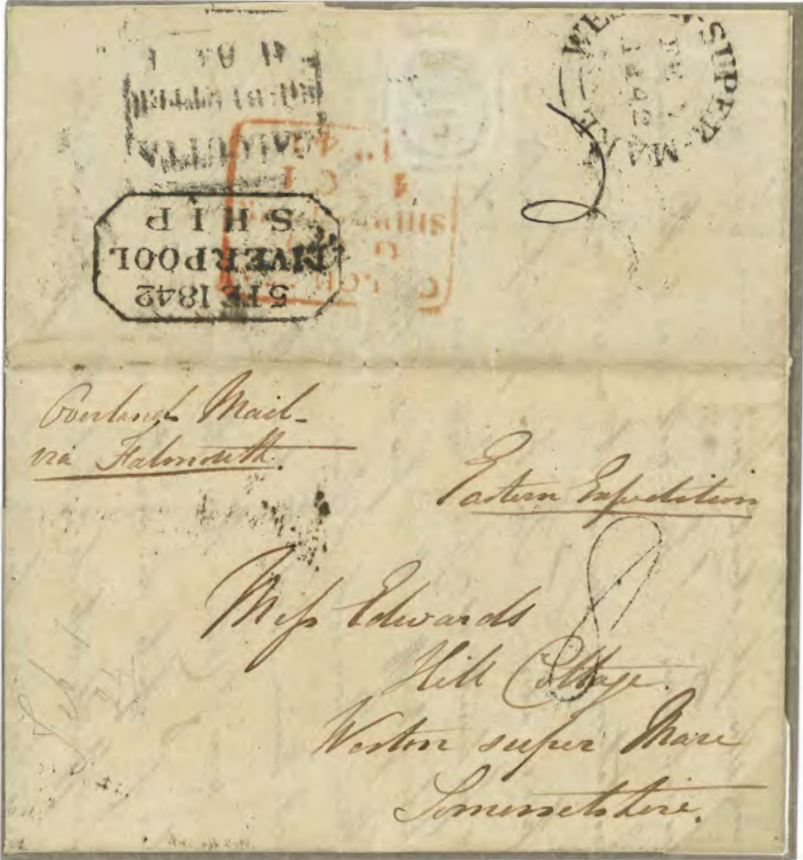 WESTON-SUPER-MARE
1842
CALCUTTA
SHIP LETTER
5 FE 1842
LIVERPOOL
SHIP
Overland Mail-
via Falmouth.
Eastern Expedition
8
Miss Edwards
Hill Cottage.
Weston super Mare
Somersetshire.